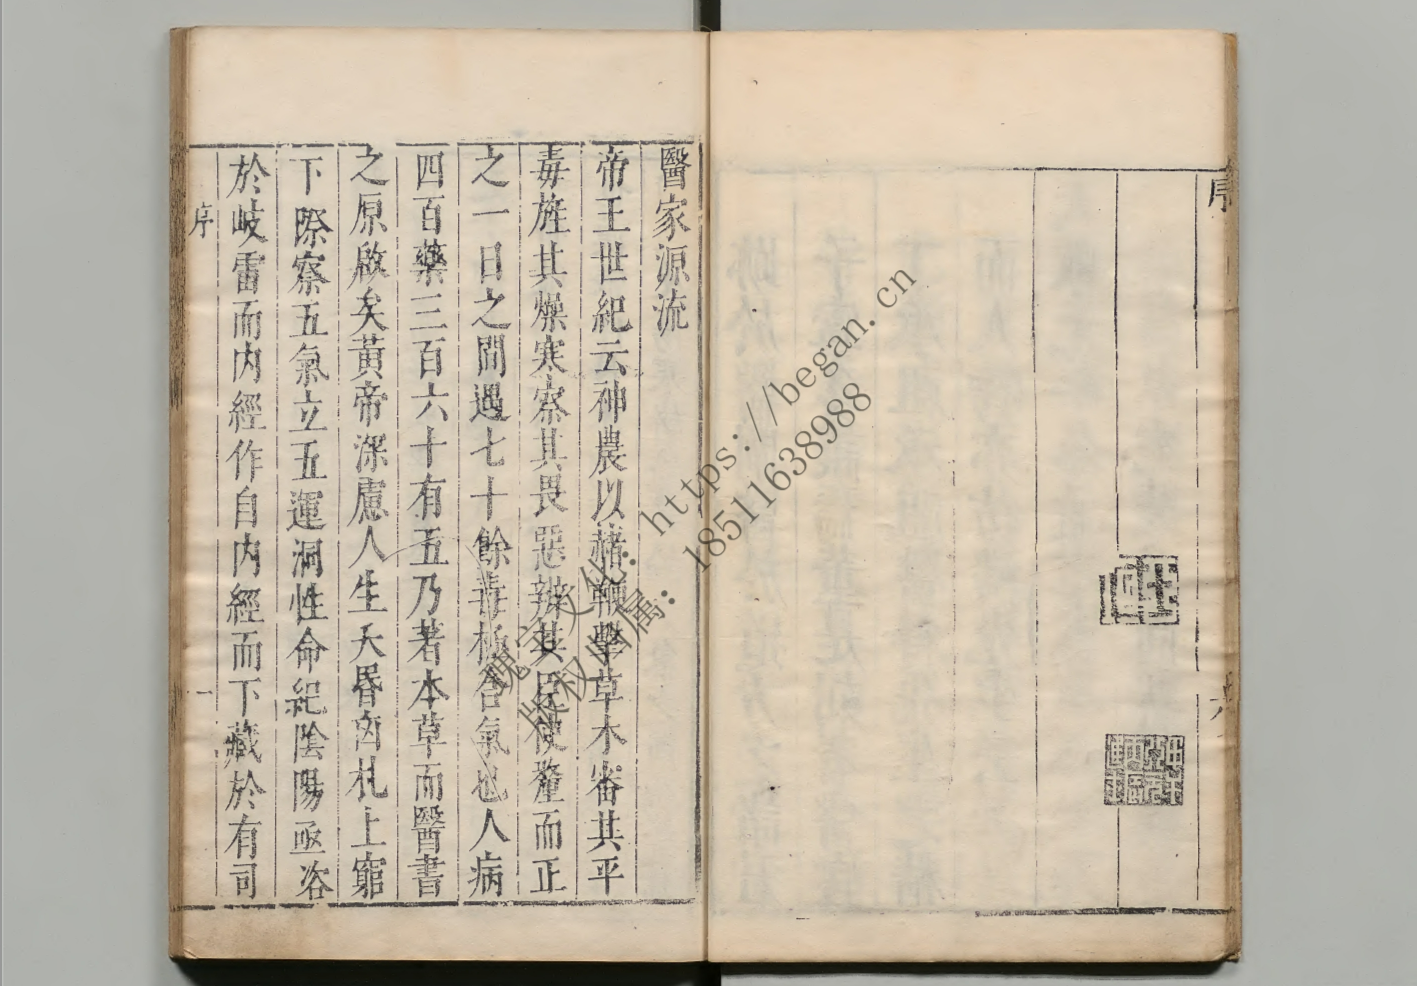 序
六
醫家源流
帝王世紀云神農以赭鞭擊草木審其平
毒旌其燥寒察其畏惡辨其臣使釐而正
之一日之間遇七十餘毒極含氣也人病
四百藥三百六十有五乃著本草而醫書
之原啟矣黃帝深慮人生夭昏凶札上窮
下際察五氣立五運洞性命紀陰陽亟咨
於岐雷而內經作自內經而下藏於有司
序
一
https://began.cn
版权归属: 18511638988